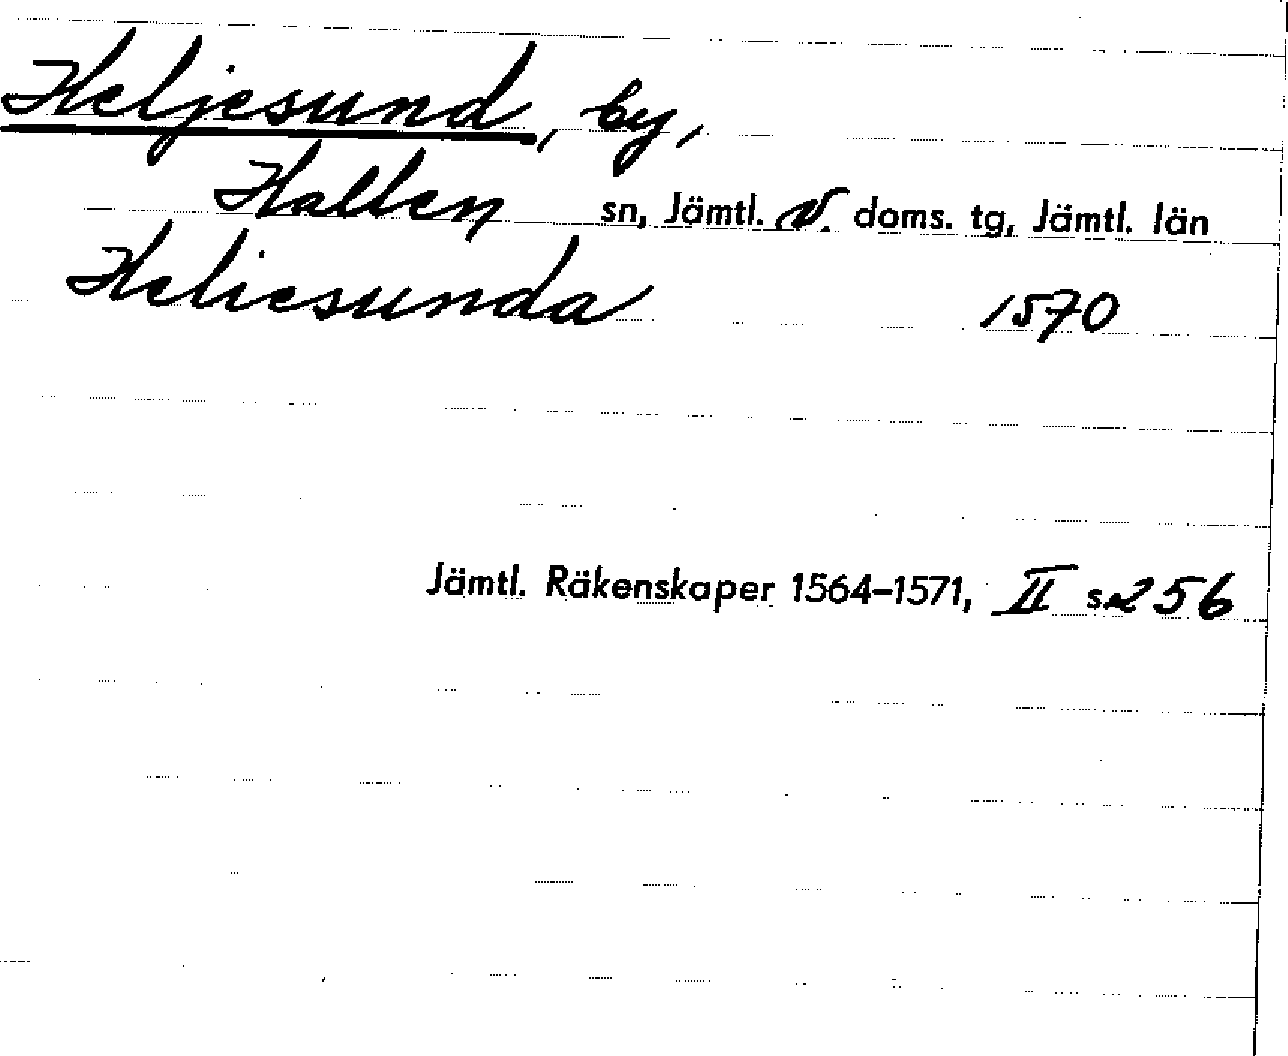 Heljesund, by,
Hallen sn, Jämtl. v. doms. tg, Jämtl. län
Heliesunda 1570
Jämtl. Räkenskaper 1564–1571, II s. 256